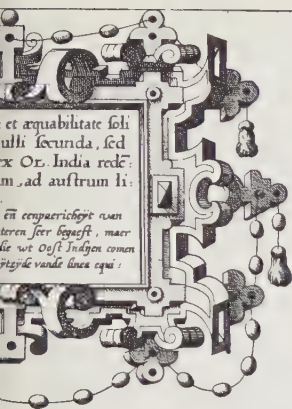 et æquabilitate soli
ulli secunda, sed
ex Or. India rede:
m, ad austrum li:
en eenpaericheÿt van
teren seer begaeft, maer
die wt Oost Indÿen comen
ÿtzÿde vande linea equi: